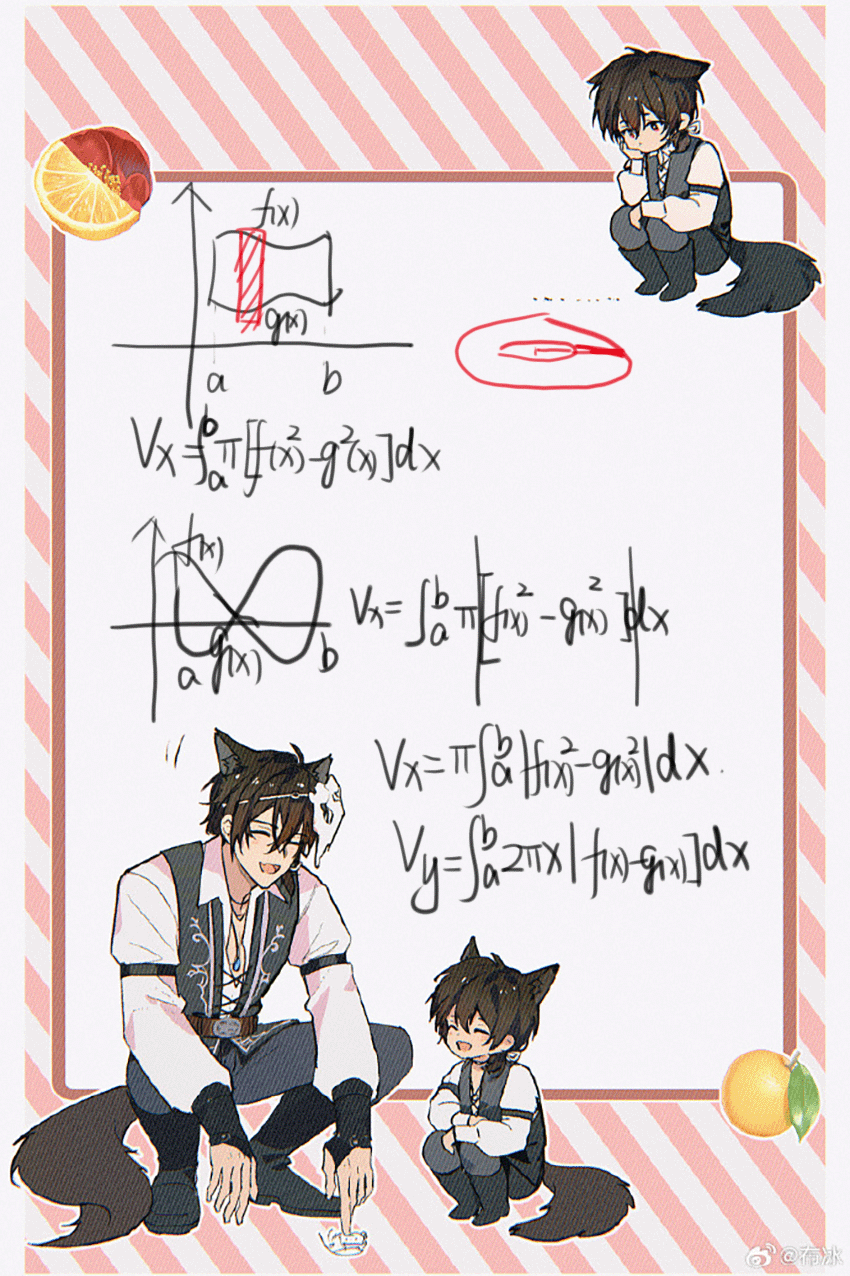 f(x)
g(x)
a b
Vx=∫ₐᵇπ[f(x)²-g²(x)]dx
f(x)
a g(x) b
Vx=∫ₐᵇπ|[f(x)²-g(x)²]|dx
Vx=π∫ₐᵇ|f(x)²-g(x)²|dx.
Vy=∫ₐᵇ2πx|f(x)-g(x)]dx
@布冰